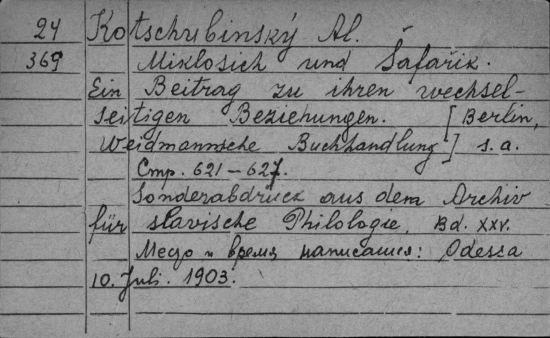 24 Kotschubinský Al.
369 Miklosich und Šafařik.
Ein Beitrag zu ihren wechsel-
seitigen Beziehungen. [Berlin,
Weidmannsche Buchhandlung] s.a.
Стр. 621–627.
Sonderabdruck aus dem Archiv
für slavische Philologie, Bd. XXV.
Место и время написания: Odessa
10. Juli. 1903.